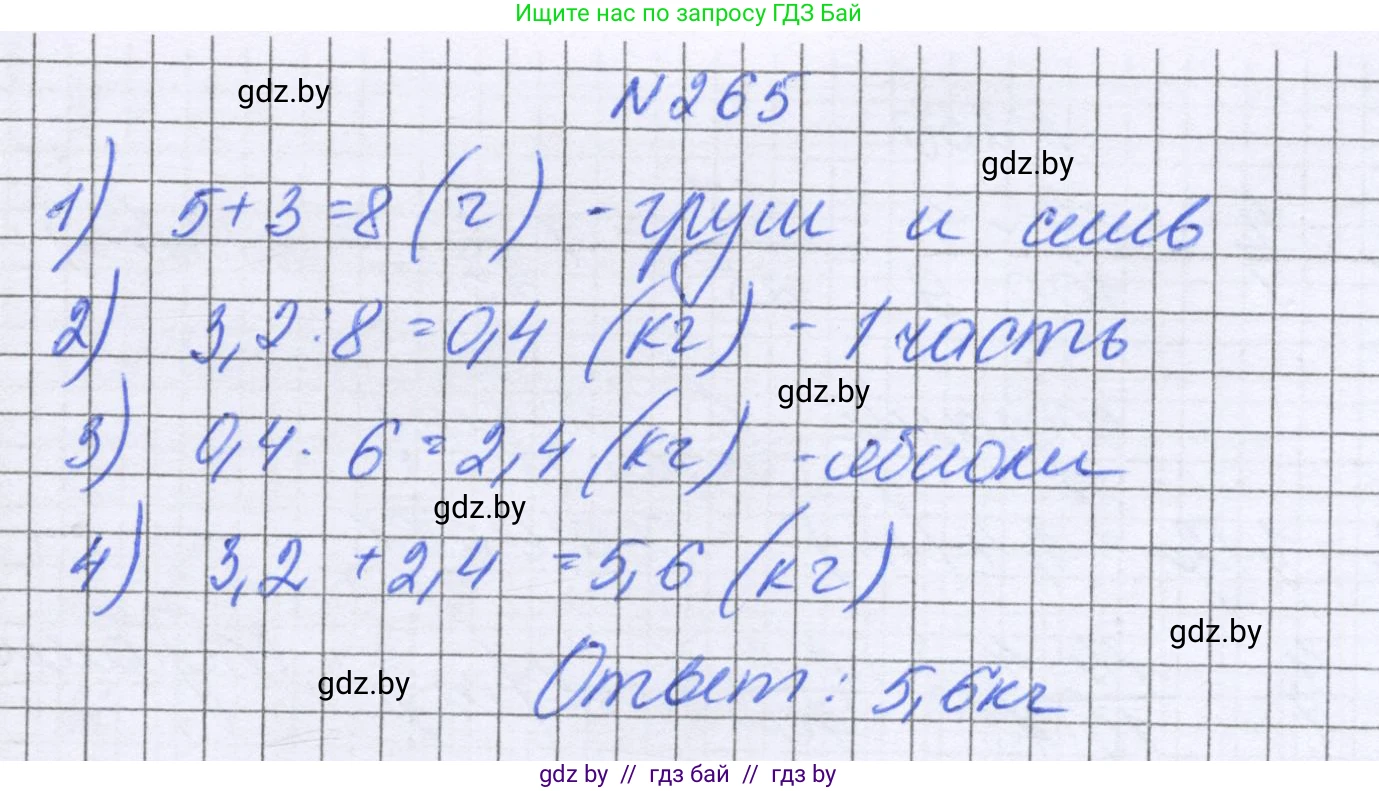 Ищите нас по запросу ГДЗ Бай
gdz.by
N 265
gdz.by
1) 5+3=8 (г) - груш и слив
2) 3,2:8=0,4 (кг) - 1 часть
gdz.by
3) 0,4·6=2,4 (кг) - яблоки
gdz.by
4) 3,2+2,4=5,6 (кг)
gdz.by
Ответ: 5,6кг
gdz.by
gdz by // гдз бай // гдз by